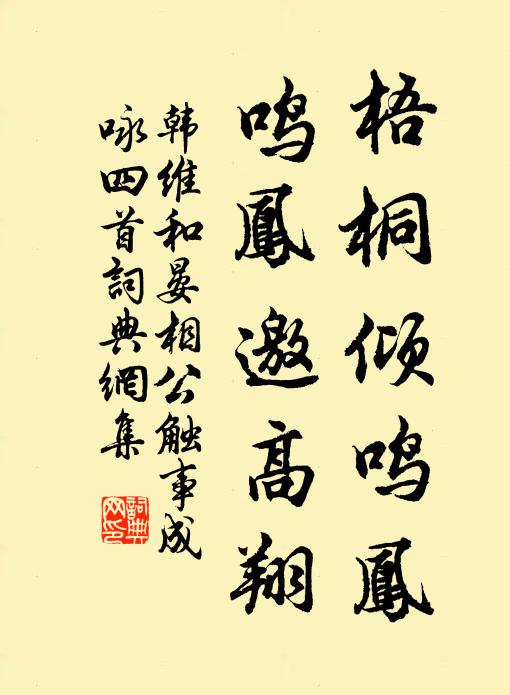 梧桐倾鸣鳳
鸣鳳邀高翔
韩维和晏相公触事成
咏四首詞典網集
詞典
网印